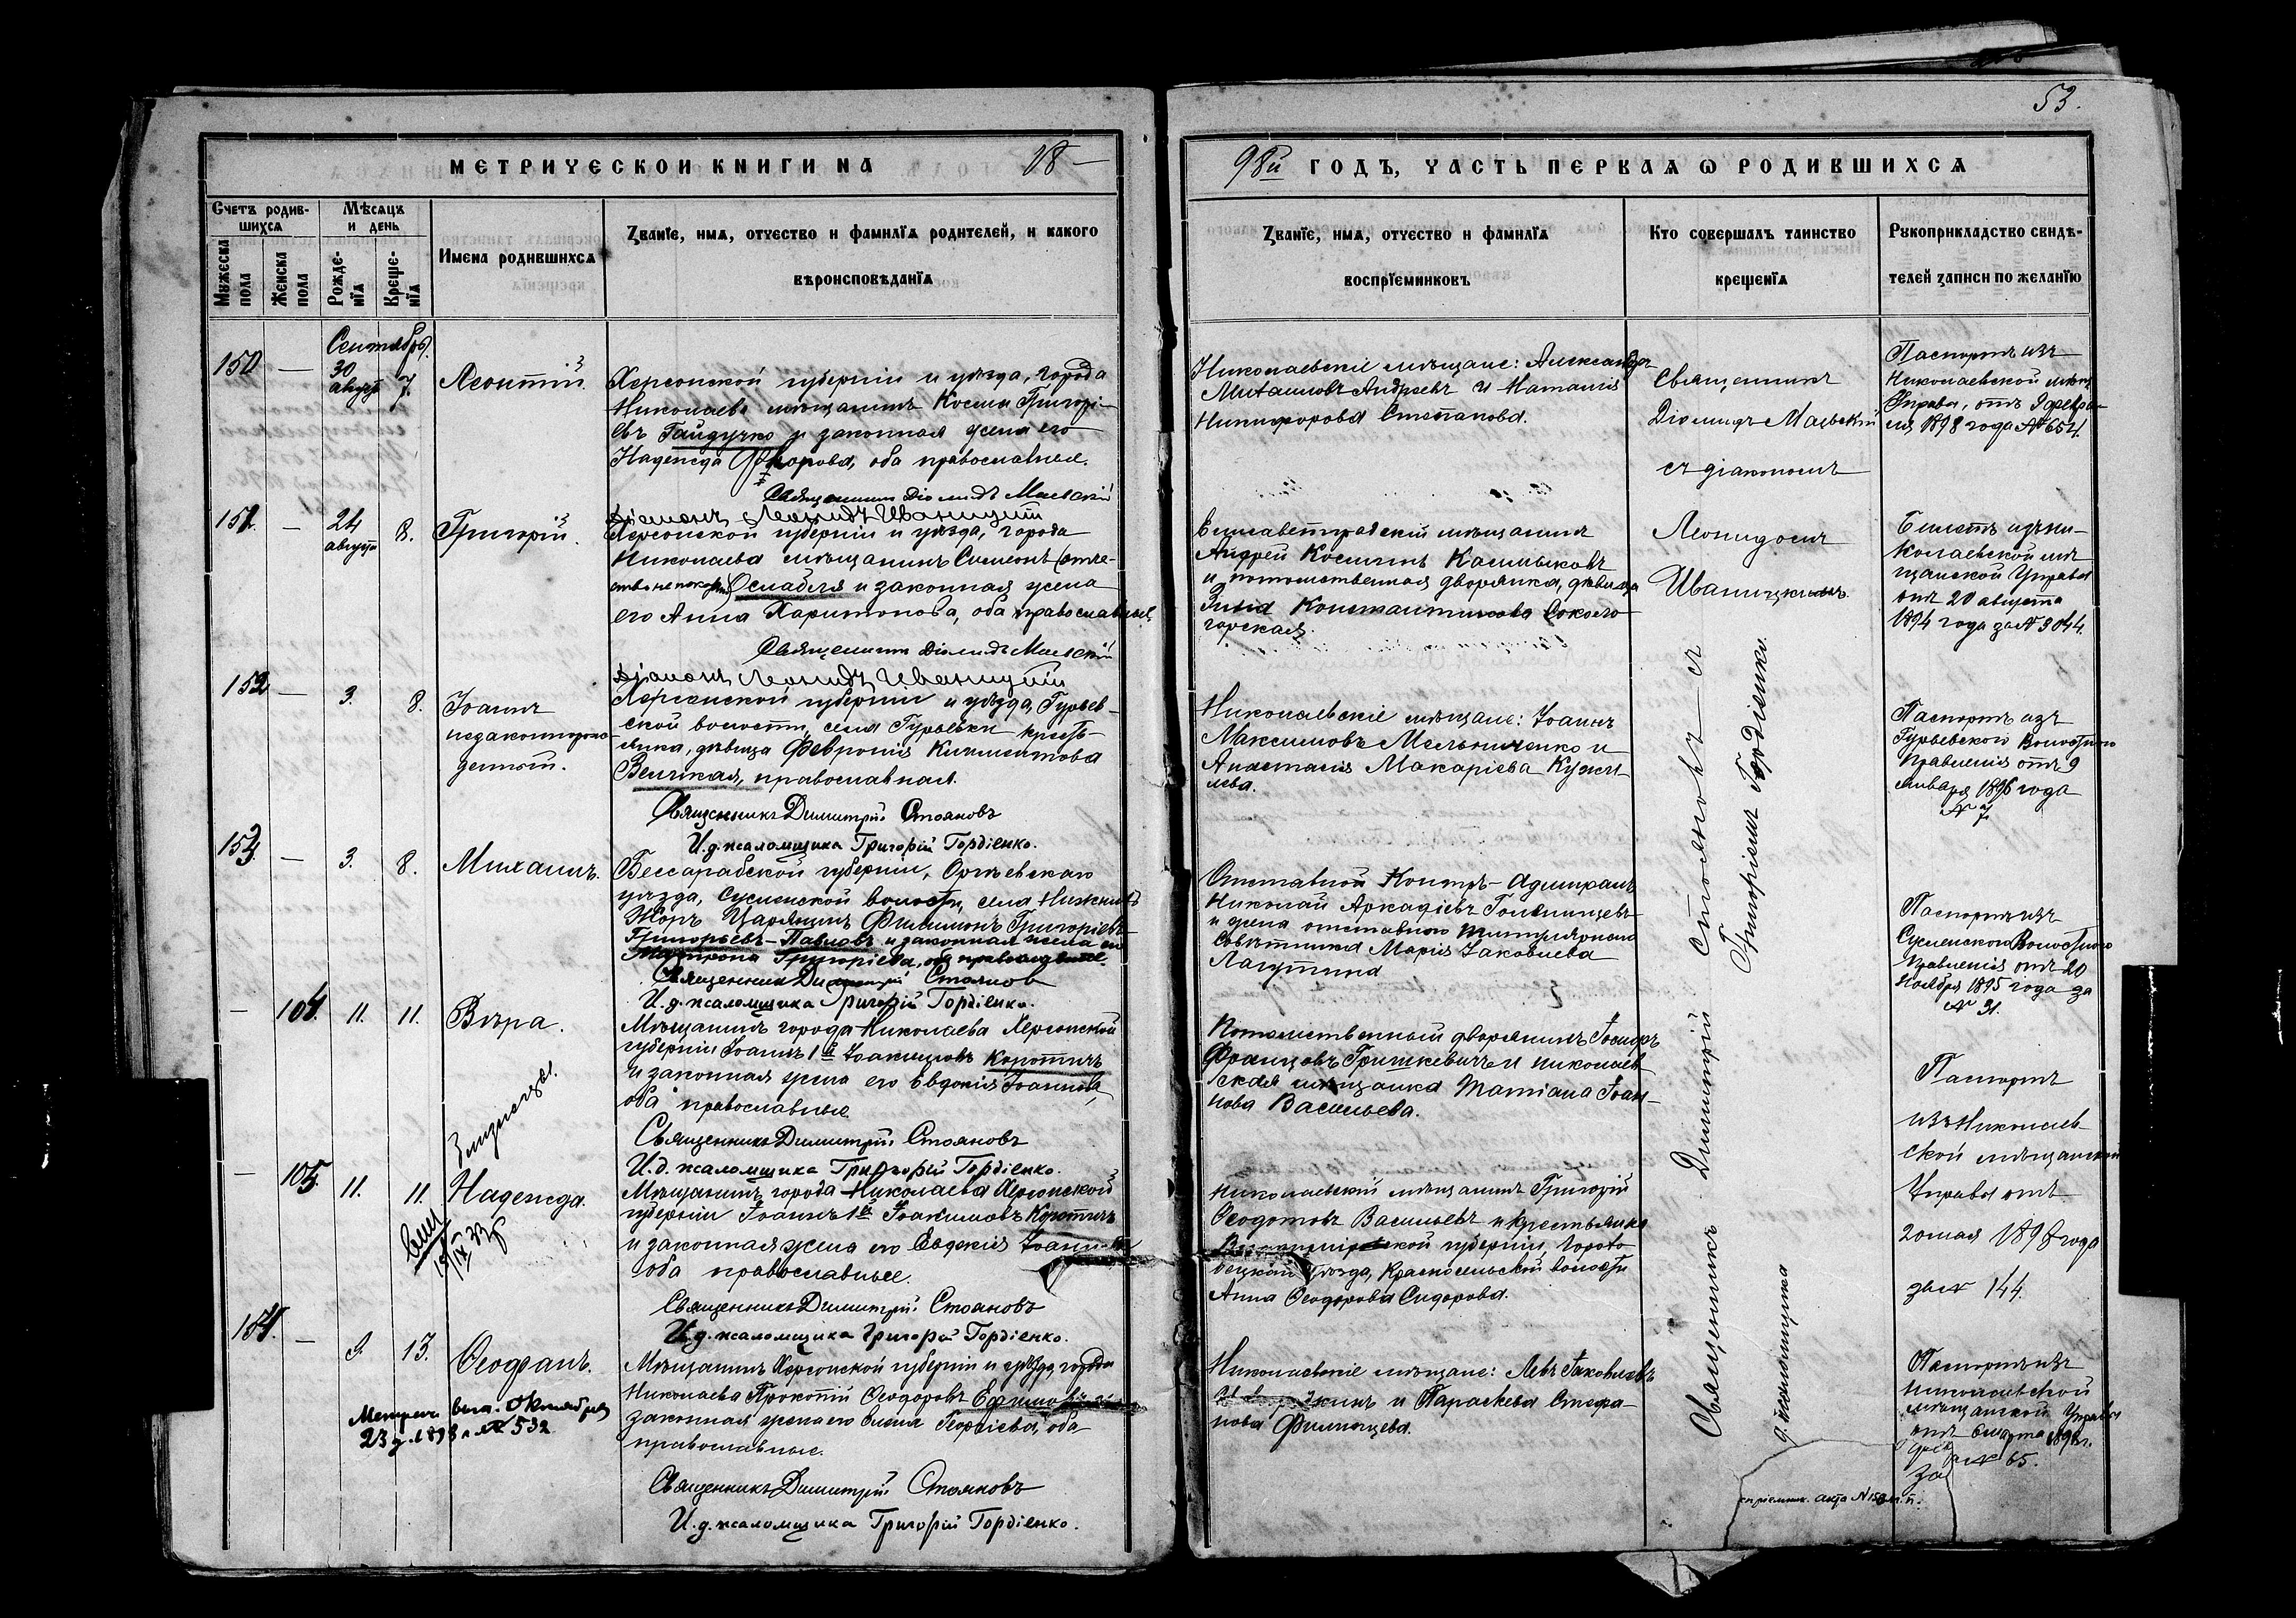 53.
МЕТРИЧЕСКОЙ КНИГИ НА 18—
98й ГОДЪ, ЧАСТЬ ПЕРВАЯ Ѡ РОДИВШИХСЯ
Счетъ родив-
шихся
Мужеска
пола
Женска
пола
Мѣсяцъ
и день
Рожде-
нїя
Креще-
нїя
Имена родившихся
Званїе, имя, отчество и фамилїя родителей, и какого
вѣроисповѣданїя
Званїе, имя, отчество и фамилїя
воспрїемниковъ
Кто совершалъ таинство
крещенїя
Рукоприкладство свидѣ-
телей записи по желанїю
Сентябрь.
150 — 30 августа 7. Леонтій.
Херсонской губерніи и уѣзда, города
Николаева мѣщанинъ Косма Григорі-
евъ Гайдучко и законная жена его
Надежда, оба православные.
Священникъ Діомидъ Маевскій
Діаконъ Леонидъ Иваницкій
Николаевскіе мѣщане: Александръ
Андреевъ и Наталія
Никифорова Степанова.
Священникъ
Діомидъ Маевскій
съ діакономъ
Леонидомъ
Иваницкимъ.
Паспортъ изъ
Николаевской мѣщ.
Управы, отъ 9 февра-
ля 1898 года № 654.
151. — 24 августа 8. Григорій.
Херсонской губерніи и уѣзда, города
Николаева мѣщанинъ Симеонъ (отче-
и законная жена
его Анна Харитонова, оба православные.
Священникъ Діомидъ Маевскій
Діаконъ Леонидъ Иваницкій
Елисаветградскій мѣщанинъ
Андрей Косминъ Касьмыковъ
и потомственная дворянка, дѣвица
Константинова Соколо-
горская.
Билетъ изъ Ни-
колаевской мѣ-
щанской Управы
отъ 20 августа
1894 года за № 3044.
152 — 3. 8. Іоаннъ
незаконнорож-
денный.
Херсонской губерніи и уѣзда, Гурьев-
ской волости, села Гурьевки кресть-
янка, дѣвица Февронія Климентова
Великая, православная.
Священникъ Димитрій Стояновъ
И.д. псаломщика Григорій Гордіенко.
Николаевскіе мѣщане: Іоаннъ
Максимовъ Мельниченко и
Анастасія Макаріева
Паспортъ изъ
Гурьевского Волостного
Правленія отъ 9
Января 1896 года
№ 7
153. — 3. 8. Михаилъ.
Бессарабской губерніи, Оргѣевскаго
уѣзда, Суслинской волости, села Нижнихъ
Жоръ Царянинъ Филимонъ Григоріевъ
Григорьевъ-Павловъ и законная жена его
Григоріева, оба православные.
Священникъ Димитрій Стоянов
И.д. псаломщика Григорій Гордіенко.
Отставной Контръ-Адмиралъ
Николай Аркадіевъ Голенищевъ
и жена отставного титулярнаго
совѣтника Марія Іаковлева
Лагутина
Паспортъ изъ
Волостного
Правленія отъ 20
Ноября 1895 года за
№ 31.
— 104. 11. 11. Вѣра.
Мѣщанинъ города Николаева Херсонской
губерніи Іоаннъ 1й Іоакимовъ Коротичъ
и законная жена его Евдокія Іоаннова,
оба православные
Священникъ Димитрій Стояновъ
И.д. псаломщика Григорій Гордіенко.
Потомственный дворянинъ Іосифъ
Францовъ Гришкевичъ и николаев-
ская мѣщанка Татіана Іоан-
нова Васильева.
Близнецы.
Паспортъ
изъ Николаев-
ской мѣщанской
Управы отъ
1898 года
за № 144.
— 105. 11. 11. Надежда.
Мѣщанинъ города Николаева Херсонской
губерніи Іоаннъ 1й Іоакимовъ Коротичъ
и законная жена его Евдокія
оба православные.
Священникъ Димитрій Стояновъ
И.д. псаломщика Григорій Гордіенко.
Николаевскій мѣщанинъ Григорій
Ѳеодотовъ Васильевъ и крестьянка
губерніи, Горохо-
вецкой уѣзда, Красносельской волости
Анна Ѳеодорова Сидорова.
154. — 9. 13. Ѳеофанъ.
Мѣщанинъ Херсонской губерніи и уѣзда, города
Николаева Прокопій Ѳеодоровъ
законная жена его Елена Георгіева, оба
православные.
Священникъ Димитрій Стояновъ
И.д. псаломщика Григорій Гордіенко.
Метрич. выд. Октября
23 д. 1898 г. № 532
Николаевскіе мѣщане: Левъ Іаковлевъ
и Параскева Стефа-
нова Филипцева.
Священникъ Димитрій Стояновъ съ
д. псаломщика Григоріемъ Гордіенко.
Паспортъ изъ
Николаевской
мѣщанской Управы
отъ 6 марта 1898 г.
за № 65.